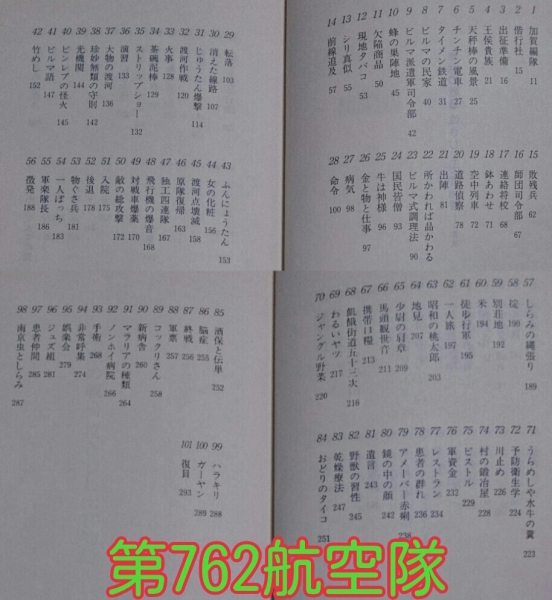 1 加賀編隊 11
2 偕行社 15
3 出征準備 16
4 王侯貴族 21
5 天秤棒の風景 25
6 チンチン電車 27
7 タイメン鉄道 31
8 ビルマの民家 40
9 ビルマ派遣軍司令部 42
10 蜂の巣陣地 45
11 欠陥商品 50
12 現地タバコ 53
13 シリ真似 55
14 前線追及 57
15 敗残兵 62
16 師団司令部 67
17 連絡将校 68
18 鉢あわせ 71
19 空中列車 72
20 道路偵察 78
21 出陣 81
22 所かわれば品かわる 85
23 ビルマ式調理法 90
24 国民皆僧 93
25 牛は神様 96
26 金と物と仕事 97
27 病気 98
28 命令 100
29 転落 103
30 消えた線路 107
31 じゅうたん爆撃 114
32 渡河作戦 120
33 火事 128
34 茶碗蒸棒 129
35 ストリップショー 132
36 演習 133
37 大物の渡河 136
38 珍妙無類の守則 142
39 光機関 144
40 ピンレブの怪火 145
41 ビルマ語 147
42 竹めし 152
43 ふんにょうたん 153
44 女の化粧 156
45 渡河点壊滅 158
46 原隊復帰 163
47 独工四連隊 167
48 飛行機の爆音 168
49 対戦車爆薬 170
50 敵の総攻撃 172
51 入院 175
52 後退 178
53 物ぐさ兵 181
54 一人ぼっち 183
55 軍楽隊長 186
56 徴発 188
57 しらみの縄張り 189
58 掟 190
59 別荘地 192
60 米 194
61 徒歩行軍 195
62 一人旅 197
63 昭和の桃太郎 203
64 地見 207
65 少尉の肩章 209
66 馬頭観世音 211
67 携帯口糧 213
68 飢餓街道五十三次 216
69 わるいヤツ 217
70 ジャングル野菜 220
71 うらめしや水牛の糞 223
72 予防衛生学 224
73 川止め 226
74 村の鍛冶屋 228
75 ピストル 229
76 軍資金 232
77 レストラン 234
78 患者の群れ 236
79 アメーバー赤痢 238
80 鏡の中の顔 242
81 遺言 243
82 野獣の習性 245
83 乾燥療法 247
84 おどりのタイコ 251
85 酒保と伝単 252
86 脳症 255
87 終戦 256
88 軍票 257
89 コックリさん 258
90 新病舎 260
91 マラリアの種類 264
92 ノンホイ病院 266
93 手術 268
94 非常呼集 274
95 娯楽会 279
96 ジュズ組 281
97 患者仲間 285
98 南京虫としらみ 287
99 ハラキリ 288
100 ガーヤン 289
101 復員 293
第762航空隊